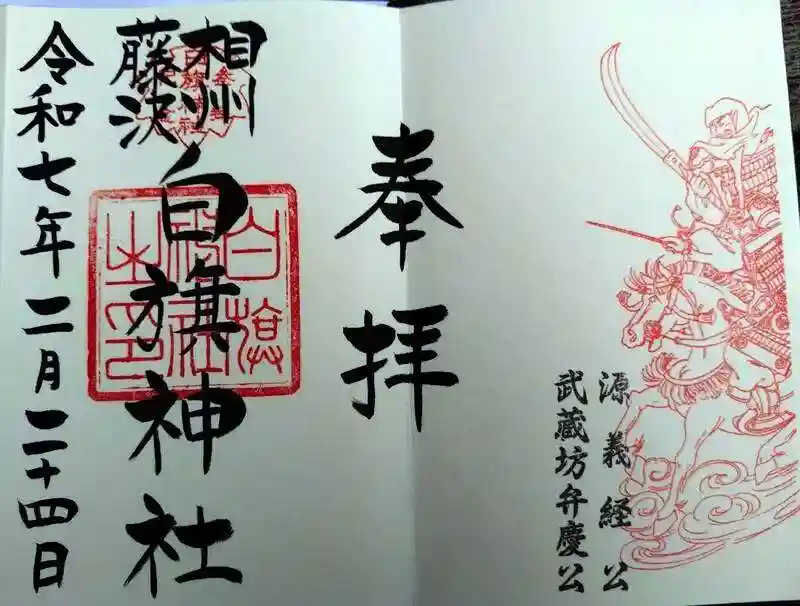 源義経公
武蔵坊弁慶公
奉拝
相州
藤沢
白旗神社
白旗
神社
之印
令和七年二月二十四日